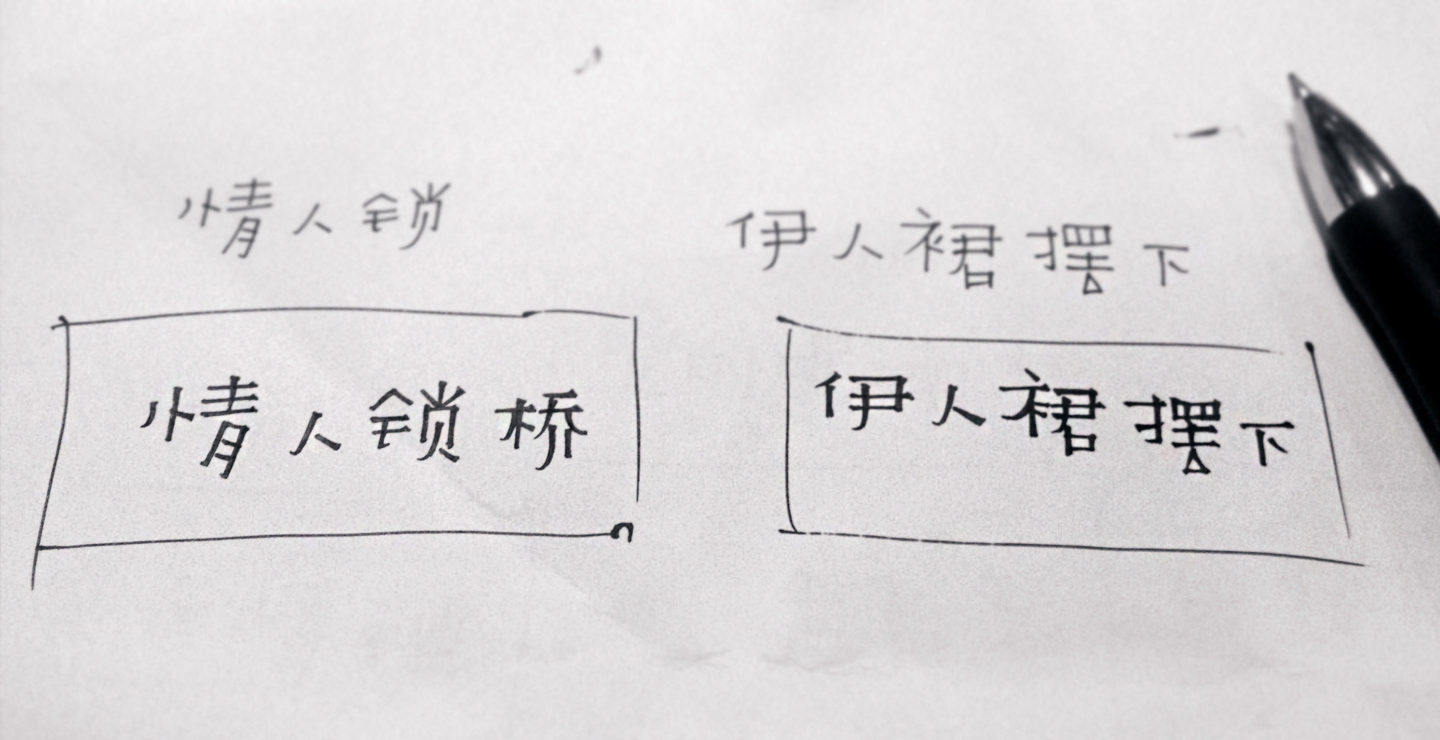 情人锁
伊人裙摆下
情人锁桥
伊人裙摆下